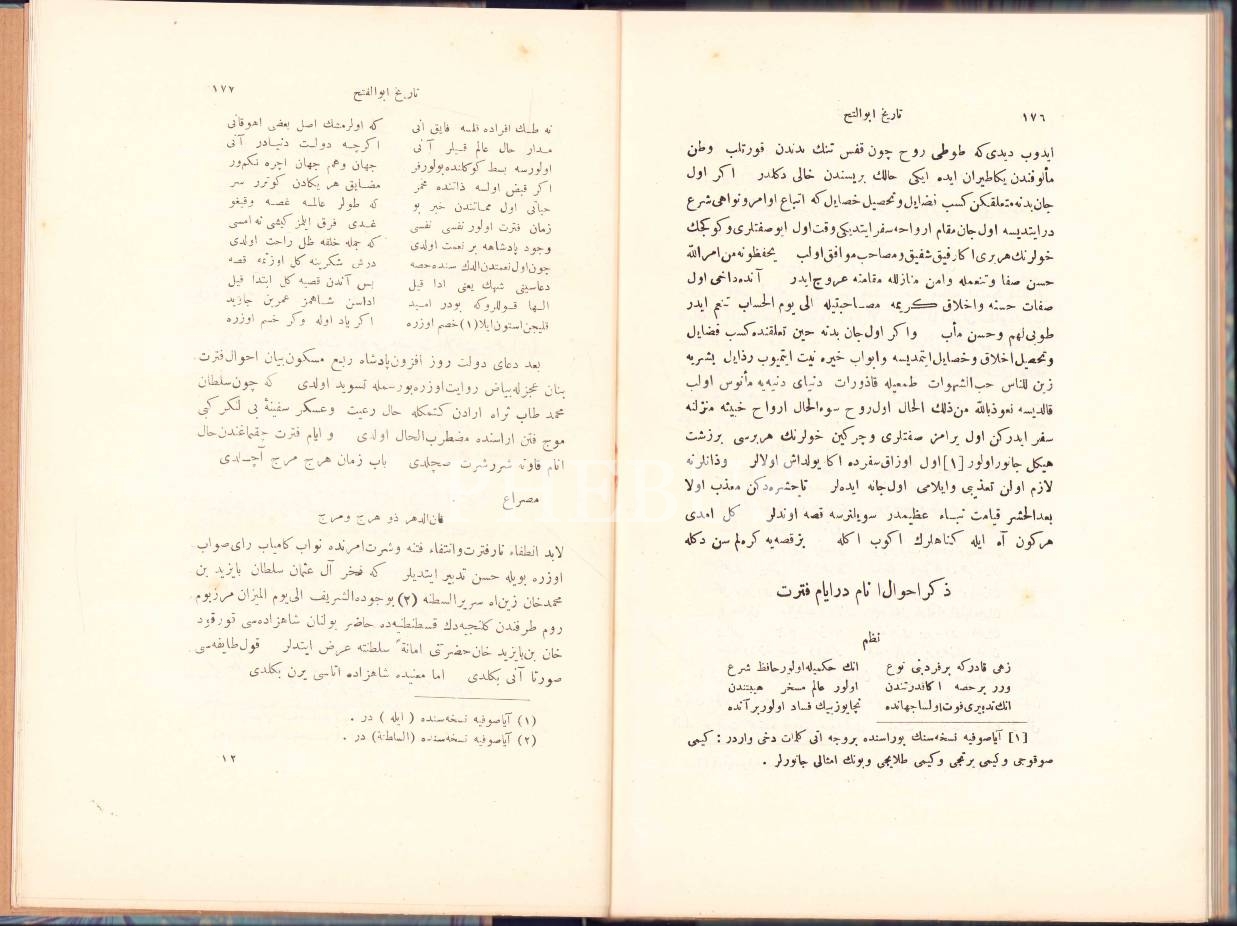 ١٧٦ تاريخ ابوالفتح
ايدوب ديدى‌كه طوطى روح چون قفس تنك بدندن قورتلب وطن
مألوفندن يكاطيران ايده ايكى حالك بريسندن خالى دكلدر اكر اول
جان‌بدنه متعلقكن كسب فضايل وتحصيل خصايل‌كه اتباع اوامر ونواهى شرع
در ايتديسه اول‌جان مقام ارواحه سفر ايتديكى وقت اول ابو صفتلرى و كوكجك
خولرنك هربرى اكا رفيق شفيق ومصاحب موافق اولب يحفظونه من امرالله
حسن صفا وتنعمله وامن منازلله مقامنه عروج ايدر آنده داخى اول
صفات حسنه واخلاق كريمه مصاحبتيله الى يوم الحساب تنعم ايدر
طوبى لهم وحسن مأب واكر اول‌جان بدنه حين تعلقنده كسب فضايل
وتحصيل اخلاق وخصايل ايتمديسه وابواب خيره نيت ايتميوب رذايل بشريه
زين للناس حب الشهوات طمعيله قاذورات دنياى دنيه‌يه مأنوس اولب
قالديسه نعوذ بالله من ذلك الحال اول روح سوءالحال ارواح خبيثه منزلنه
سفر ايدركن اول برامز صفتلرى و چركين خولرنك هربرسى برزشت
هيكل جانور اولور [١] اول اوزاق سفرده اكا يولداش اولالر وذاتلرنه
لازم اولن تعذيبى وايلامى اول‌جانه ايده‌لر تاحشره‌دكن معذب اولا
بعدالحشر قيامت نباء عظيمدر سويلنرسه قصه اوندلو كل امدى
هركون آه ايله كناهلرك اكوب اكله بزقصه‌يه كره‌لم سن دكله
ذكر احوال انام در ايام فترت
نظم
زهى قادركه برفردبنى نوع انك حكميله اولور حافظ شرع
ورر برحصه اكاقدرتندن اولور عالم مسخر هيبتندن
انك‌تدبيرى فوت اولسا جهانده نچايوزبيك فساد اولور بر آنده
[١] آياصوفيه نسخه‌سنك بوراسنده بروجه آتى كلمات دخى واردر : كيمى
صوقوجى و كيمى يرتجى و كيمى طلايجى وبونك امثالى جانورلر .
تاريخ ابوالفتح ١٧٧
نه طك افراده قلسه فايق انى كه اولرمشك اصل بعضى اهوقانى
مدار حال عالم قيلر آنى اكرچه دولت دنيادر آنى
اولورسه بسط كوكلنده بولورفر جهان وهم جهان اچره نكم‌ور
اكر قبض اولسه ذاتنده مخمر مضايق هر يكادن كوترر سر
حياتى اول مماتندن خبر بو كه طولر عالمه غصه وقيغو
زمان فترت اولور نفسى نفسى غمدى فرق ايلمز كيشى نه امسى
وجود پادشاهه بر نعمت اولدى كه جمله خلقه ظل راحت اولدى
چون‌اول نعمتدن‌الدك سنده حصه درش شكرينه كل اوزتمه قصه
دعاسينى شهك يعنى ادا قيل بس آندن قصيه كل ابتدا قيل
الها قوللروكه بودر اميد اداسن شاهمز عمرين جاويد
قليجن استون ايلا (١) خصم اوزره اكر ياد اوله وكر خسم اوزره
بعد دعاى دولت روز افزون پادشاه ربع مسكون بيان احوال فترت
بنان عجزله بياض روايت اوزره بورسمله تسويد اولدى كه چون سلطان
محمد طاب ثراه ارادن كتمكله حال رعيت وعسكر سفينۀ بى لنكر كبى
موج فتن اراسنده مضطرب الحال اولدى و ايام فترت چقماغندن حال
انام قاوته شرر شرت صچلدى باب زمان هرج مرج آچلدى
مصراع
فان‌الدهر ذو هرج ومرج
لابد انطفاء نار فترت وانتفاء فتنه و شرت امرنده نواب كامياب راى صواب
اوزره بويله حسن تدبير ايتديلر كه فخر آل عثمان سلطان بايزيد بن
محمدخان زين‌اه سرير السطنه (٢) بوجوده الشريف الى يوم الميزان مرزبوم
روم طرفندن كلنجيه‌دك قسطنطنيه‌ده حاضر بولنان شاهزاده‌سى قورقود
خان بن بايزيد خان حضرتى امانةً سلطنته عرض ايتدلر قول طايفه‌سى
صورتا آنى بكلدى اما معنيده شاهزاده اتاسى يرن بكلدى
(١) آياصوفيه نسخه‌سنده ( ايله ) در .
(٢) آياصوفيه نسخه‌سنده (السلطنة) در .
١٢
PHEB